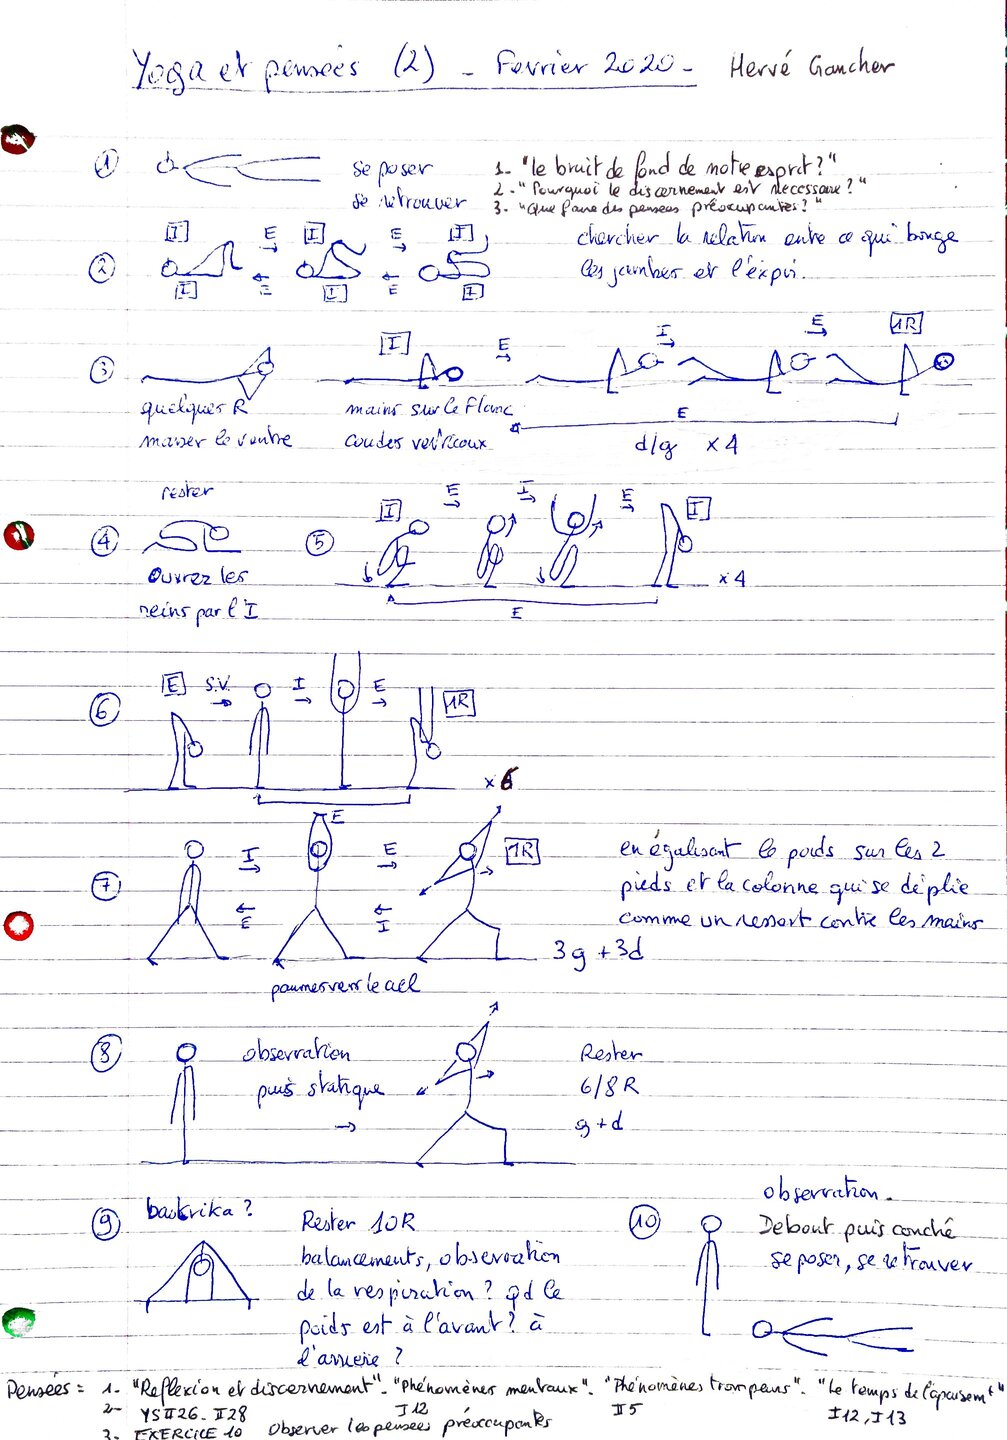 Yoga et pensées (2) - Fevrier 2020 - Hervé Gaucher
① se poser
se retrouver
1- "le bruit de fond de notre esprit?"
2- "Pourquoi le discernement est necessaire?"
3- "Que faire des pensees préoccupantes?"
② I E I E I
I E I E I
chercher la relation entre ce qui bouge
les jambes et l'éxpi.
③ I E I E 1R
quelques R
masser le ventre
mains sur le Flanc
coudes verticaux
E
d/g x4
rester
④ Ouvrez les
reins par l'I
⑤ I E I E I
x4
E
⑥ E S.V. I E 1R
x6
E
⑦ I E 1R
E I
paumes vers le ciel
3g + 3d
en égalisant le poids sur les 2
pieds et la colonne qui se déplie
comme un ressort contre les mains
⑧ observation
puis statique
Rester
6/8 R
g + d
⑨ bastrika?
Rester 10R
balancements, observation
de la respiration? qd le
poids est à l'avant? à
l'arriere?
⑩ observation.
Debout puis couché
se poser, se retrouver
Pensées = 1- "Reflexion et discernement". "Phénomènes mentaux". "Phénomènes trompeurs". "Le temps de l'apaisemt"
2- YS II 26 - II 28 I 12 II 5 I 12, I 13
3- EXERCICE 10 Observer les pensees préoccupantes